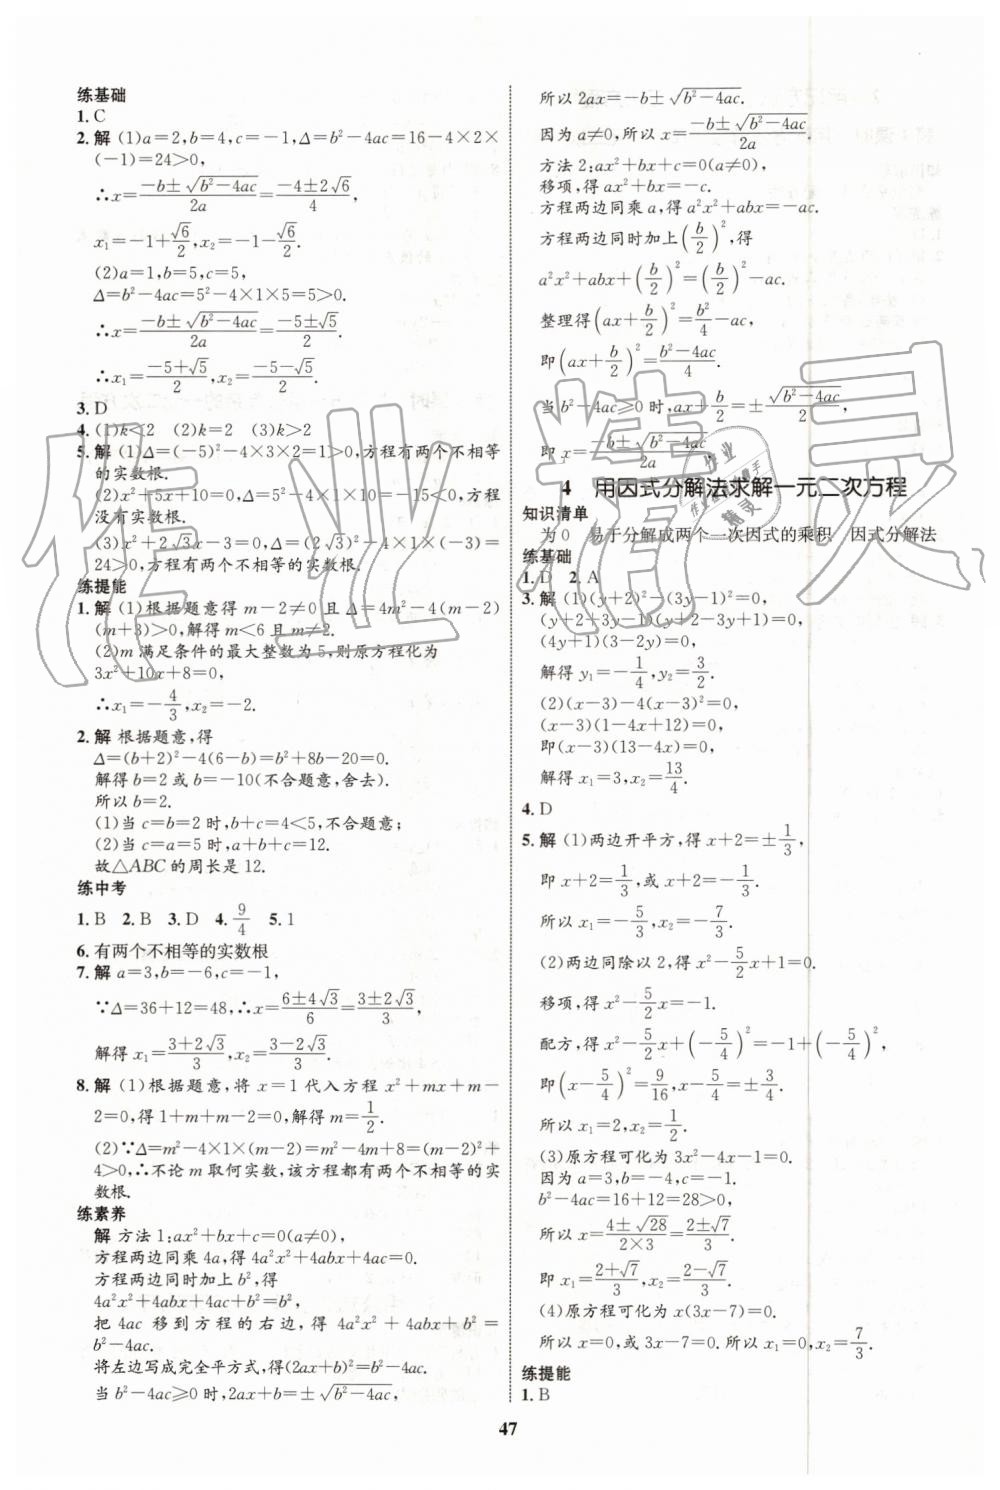 练基础
1. C
2. 解 (1)a=2,b=4,c=-1,Δ=b²-4ac=16-4×2×
(-1)=24>0,
∴x=\frac{-b±\sqrt{b²-4ac}}{2a}=\frac{-4±2\sqrt{6}}{4},
x₁=-1+\frac{\sqrt{6}}{2},x₂=-1-\frac{\sqrt{6}}{2}.
(2)a=1,b=5,c=5,
Δ=b²-4ac=5²-4×1×5=5>0.
∴x=\frac{-b±\sqrt{b²-4ac}}{2a}=\frac{-5±\sqrt{5}}{2}.
∴x₁=\frac{-5+\sqrt{5}}{2},x₂=\frac{-5-\sqrt{5}}{2}.
3. D
4. (1)k<2 (2)k=2 (3)k>2
5. 解 (1)Δ=(-5)²-4×3×2=1>0,方程有两个不相等
的实数根.
(2)x²+5x+10=0,Δ=5²-4×1×10=-15<0,方程
没有实数根.
(3)x²+2\sqrt{3}x-3=0,Δ=(2\sqrt{3})²-4×1×(-3)=
24>0,方程有两个不相等的实数根.
练提能
1. 解 (1)根据题意得 m-2≠0 且 Δ=4m²-4(m-2)
(m+3)>0,解得 m<6 且 m≠2.
(2)m 满足条件的最大整数为 5,则原方程化为
3x²+10x+8=0,
∴x₁=-\frac{4}{3},x₂=-2.
2. 解 根据题意,得
Δ=(b+2)²-4(6-b)=b²+8b-20=0.
解得 b=2 或 b=-10(不合题意,舍去).
所以 b=2.
(1)当 c=b=2 时,b+c=4<5,不合题意;
(2)当 c=a=5 时,a+b+c=12.
故△ABC 的周长是 12.
练中考
1. B 2. B 3. D 4. \frac{9}{4} 5. 1
6. 有两个不相等的实数根
7. 解 a=3,b=-6,c=-1,
∵Δ=36+12=48,∴x=\frac{6±4\sqrt{3}}{6}=\frac{3±2\sqrt{3}}{3},
解得 x₁=\frac{3+2\sqrt{3}}{3},x₂=\frac{3-2\sqrt{3}}{3}.
8. 解 (1)根据题意,将 x=1 代入方程 x²+mx+m-
2=0,得 1+m+m-2=0,解得 m=\frac{1}{2}.
(2)∵Δ=m²-4×1×(m-2)=m²-4m+8=(m-2)²+
4>0,∴不论 m 取何实数,该方程都有两个不相等的实
数根.
练素养
解 方法 1:ax²+bx+c=0(a≠0),
方程两边同乘 4a,得 4a²x²+4abx+4ac=0.
方程两边同时加上 b²,得
4a²x²+4abx+4ac+b²=b²,
把 4ac 移到方程的右边,得 4a²x²+4abx+b²=
b²-4ac.
将左边写成完全平方式,得(2ax+b)²=b²-4ac.
当 b²-4ac≥0 时,2ax+b=±\sqrt{b²-4ac},
所以 2ax=-b±\sqrt{b²-4ac}.
因为 a≠0,所以 x=\frac{-b±\sqrt{b²-4ac}}{2a}.
方法 2:ax²+bx+c=0(a≠0),
移项,得 ax²+bx=-c.
方程两边同乘 a,得 a²x²+abx=-ac.
方程两边同时加上(\frac{b}{2})²,得
a²x²+abx+(\frac{b}{2})²=(\frac{b}{2})²-ac.
整理得(ax+\frac{b}{2})²=\frac{b²}{4}-ac,
即(ax+\frac{b}{2})²=\frac{b²-4ac}{4}.
当 b²-4ac≥0 时,ax+\frac{b}{2}=±\frac{\sqrt{b²-4ac}}{2},
即 x=\frac{-b±\sqrt{b²-4ac}}{2a}.
4 用因式分解法求解一元二次方程
知识清单
为 0 易于分解成两个一次因式的乘积 因式分解法
练基础
1. D 2. A
3. 解 (1)(y+2)²-(3y-1)²=0,
(y+2+3y-1)(y+2-3y+1)=0,
(4y+1)(3-2y)=0,
解得 y₁=-\frac{1}{4},y₂=\frac{3}{2}.
(2)(x-3)-4(x-3)²=0,
(x-3)(1-4x+12)=0,
即(x-3)(13-4x)=0,
解得 x₁=3,x₂=\frac{13}{4}.
4. D
5. 解 (1)两边开平方,得 x+2=±\frac{1}{3},
即 x+2=\frac{1}{3},或 x+2=-\frac{1}{3}.
所以 x₁=-\frac{5}{3},x₂=-\frac{7}{3}.
(2)两边同除以 2,得 x²-\frac{5}{2}x+1=0.
移项,得 x²-\frac{5}{2}x=-1.
配方,得 x²-\frac{5}{2}x+(-\frac{5}{4})²=-1+(-\frac{5}{4})²,
即(x-\frac{5}{4})²=\frac{9}{16},x-\frac{5}{4}=±\frac{3}{4}.
所以 x₁=2,x₂=\frac{1}{2}.
(3)原方程可化为 3x²-4x-1=0.
因为 a=3,b=-4,c=-1.
b²-4ac=16+12=28>0,
所以 x=\frac{4±\sqrt{28}}{2×3}=\frac{2±\sqrt{7}}{3}.
即 x₁=\frac{2+\sqrt{7}}{3},x₂=\frac{2-\sqrt{7}}{3}.
(4)原方程可化为 x(3x-7)=0.
所以 x=0,或 3x-7=0. 所以 x₁=0,x₂=\frac{7}{3}.
练提能
1. B
47
作业精灵